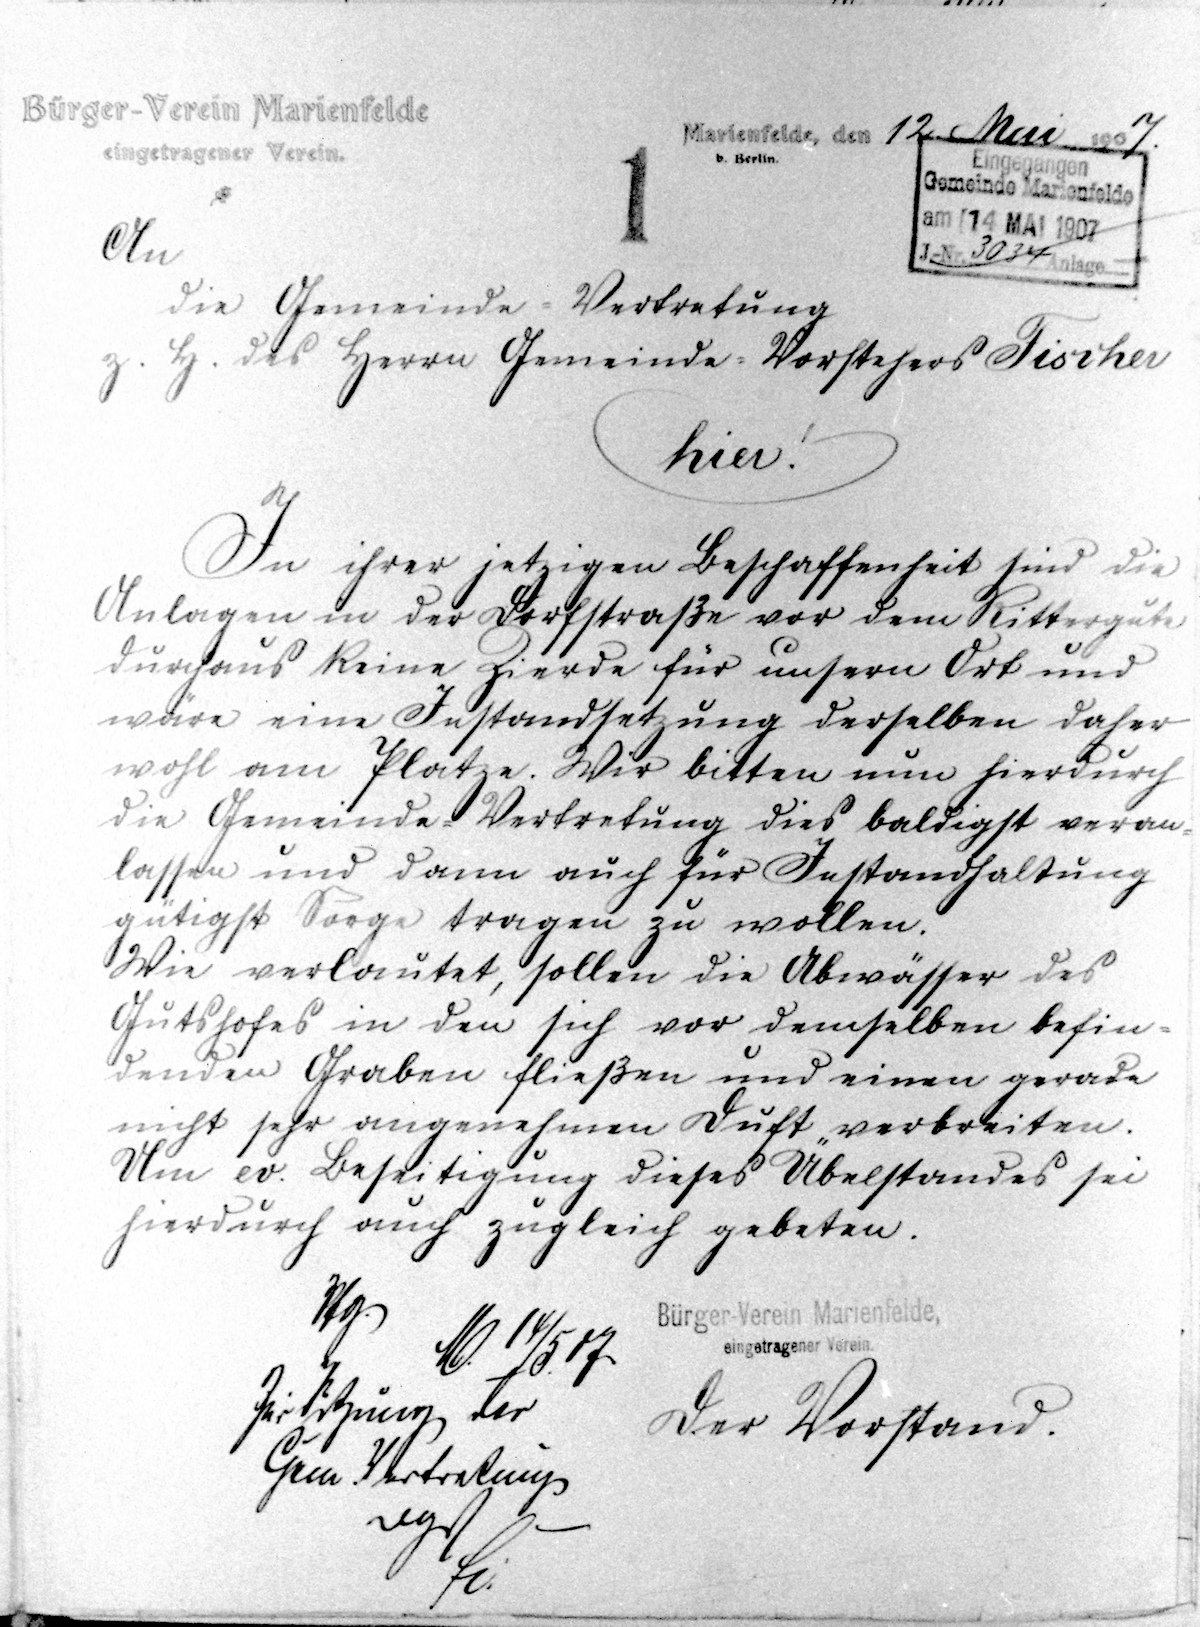 Bürger-Verein Marienfelde
eingetragener Verein.
Marienfelde, den 12. Mai 1907.
b. Berlin.
1
Eingegangen
Gemeinde Marienfelde
am 14 MAI 1907
J.-Nr. 3034 Anlage
An
die Gemeinde-Vertretung
z. H. des Herrn Gemeinde-Vorstehers Fischer
hier!
In ihrer jetzigen Beschaffenheit sind die
Anlagen in der Dorfstraße vor dem Rittergute
durchaus keine Zierde für unsern Ort und
wäre eine Instandsetzung derselben daher
wohl am Platze. Wir bitten nun hierdurch
die Gemeinde-Vertretung dies baldigst veran-
lassen und dann auch für Instandhaltung
gütigst Sorge tragen zu wollen.
Wie verlautet, sollen die Abwässer des
Gutshofes in den sich vor demselben befin-
denden Graben fließen und einen gerade
nicht sehr angenehmen Duft verbreiten.
Um ev. Beseitigung dieses Übelstandes sei
hierdurch auch zugleich gebeten.
Bürger-Verein Marienfelde,
eingetragener Verein.
Der Vorstand.
M. 14/5.07.
Zur Sitzung der
Gem. Vertretung